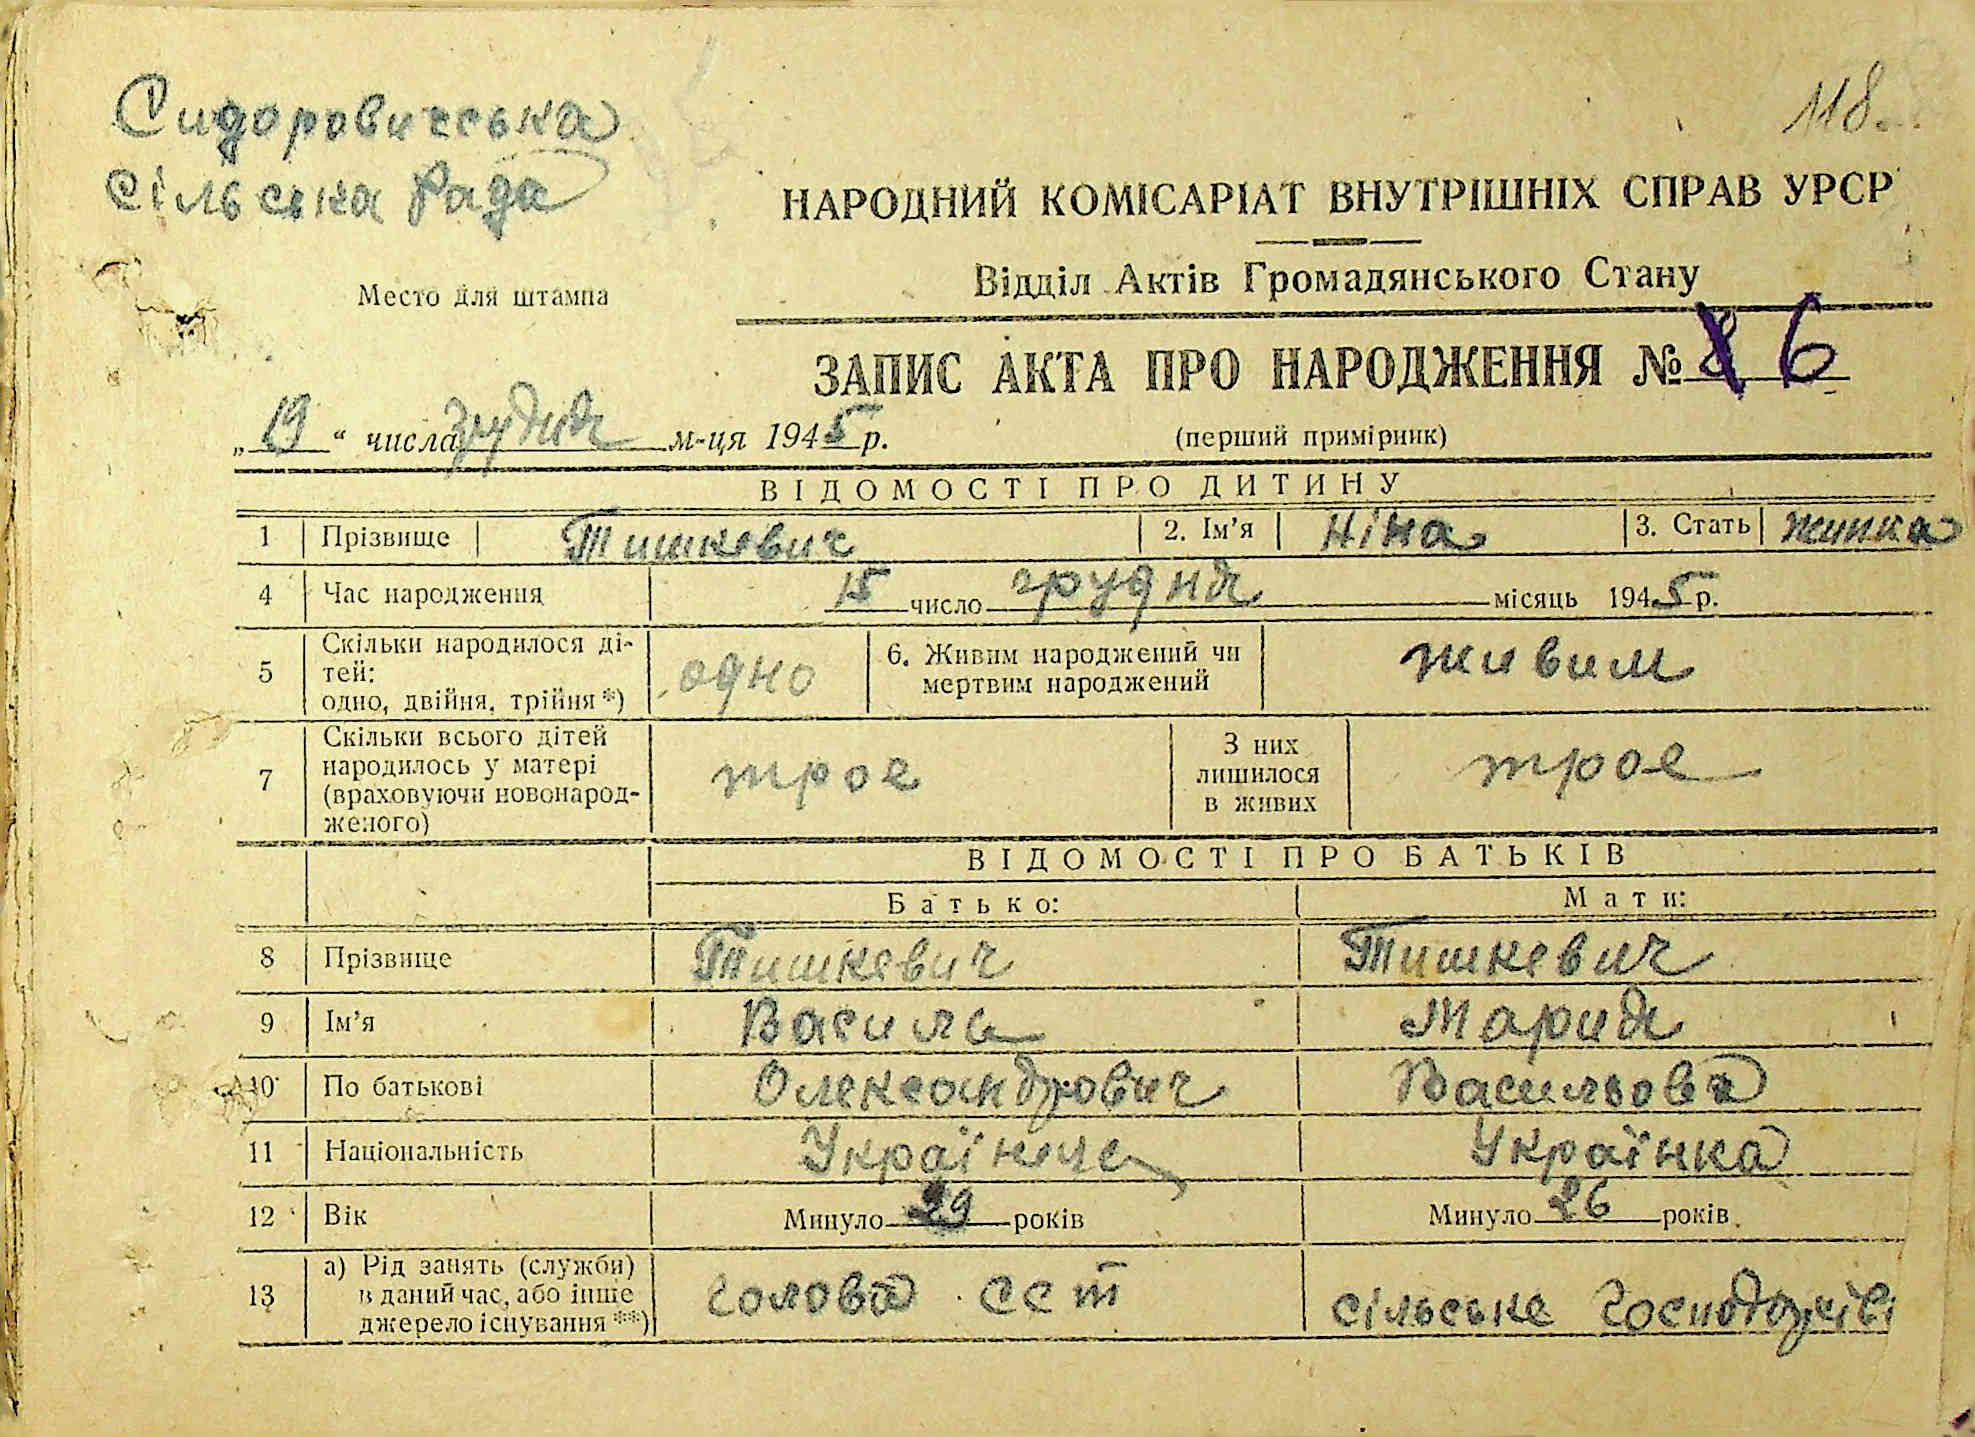 Сидоровичська
сільська Рада
118.
НАРОДНИЙ КОМІСАРІАТ ВНУТРІШНІХ СПРАВ УРСР
Відділ Актів Громадянського Стану
Место для штампа
ЗАПИС АКТА ПРО НАРОДЖЕННЯ № 6
„19“ числа грудня м-ця 1945 р.
(перший примірник)
ВІДОМОСТІ ПРО ДИТИНУ
1 Прізвище Тишкевич 2. Ім’я Ніна 3. Стать жинка
4 Час народження 15 число грудня місяць 1945 р.
5 Скільки народилося ді-
тей:
одно, двійня, трійня *) одно 6. Живим народжений чи
мертвим народжений живим
7 Скільки всього дітей
народилось у матері
(враховуючи новонарод-
женого) трое З них
лишилося
в живих трое
ВІДОМОСТІ ПРО БАТЬКІВ
Батько: Мати:
8 Прізвище Тишкевич Тишкевич
9 Ім’я Василь Мария
10 По батькові Олександрович Васильовa
11 Національність Українец Українка
12 Вік Минуло 29 років Минуло 26 років
13 а) Рід занять (служби)
в даний час, або інше
джерело існування **) голова ССТ сільське